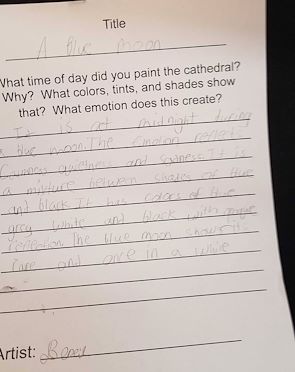 Title
A blue moon
What time of day did you paint the cathedral?
Why? What colors, tints, and shades show
that? What emotion does this create?
It is at midnight during
a blue moon. The emotion reflects
quietness and sadness. It is
a mixture between shades of blue
and black. It has colors of blue
grey white and black with
reflection. The blue moon shows its
rare and once in a while
Artist: